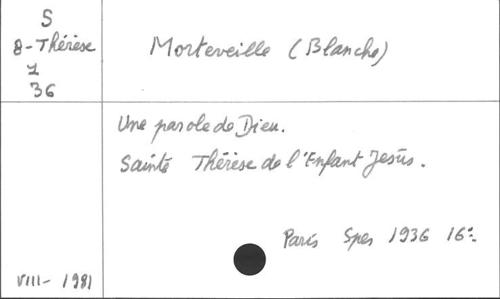 S
8-Thérèse
1
36
Morteveille (Blanche)
Une parole de Dieu.
Sainte Thérèse de l'Enfant Jesus.
Paris Spes 1936 16°
VIII- 1981